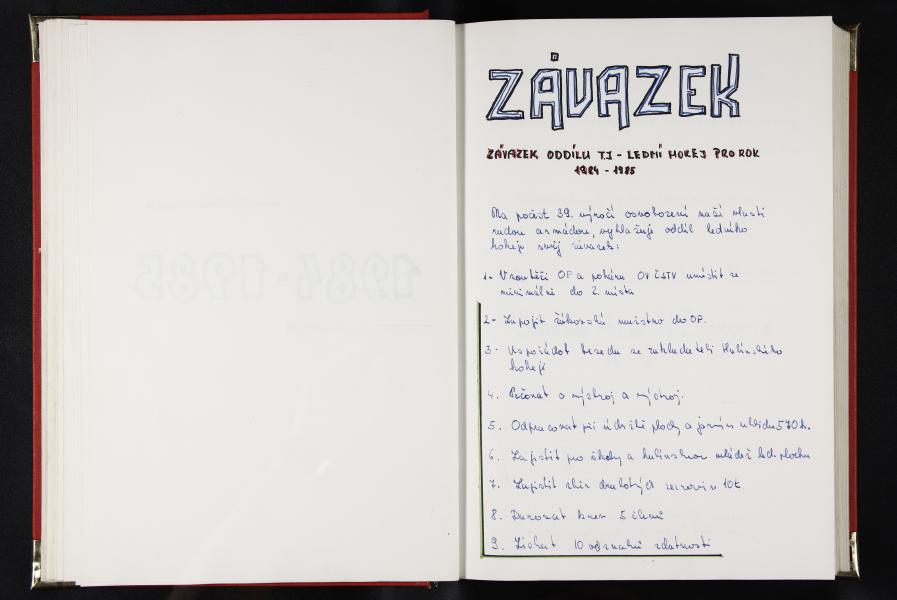 ZÁVAZEK
ZÁVAZEK ODDÍLU TJ - LEDNÍ HOKEJ PRO ROK
1984 - 1985
Na počest 39. výročí osvobození naší vlasti
rudou armádou, vyhlašuje oddíl ledního
hokeje svůj závazek:
1- V soutěži OP a poháru OV ČSTV umístit se
minimálně do 2. místa
2- Zapojit žákovské mužstvo do OP.
3- Uspořádat besedu se zakladateli Hulínského
hokeje
4. Pečovat o výstroj a výzbroj.
5. Odpracovat při údržbě plochy a jarním úklidu 570 h.
6. Zajistit pro školy a hulínskou mládež led. plochu
7. Zajistit sběr druhotných surovin 10t.
8. Darovat krev 5 členů
9. Získat 10 odznaků zdatnosti
1984-1985